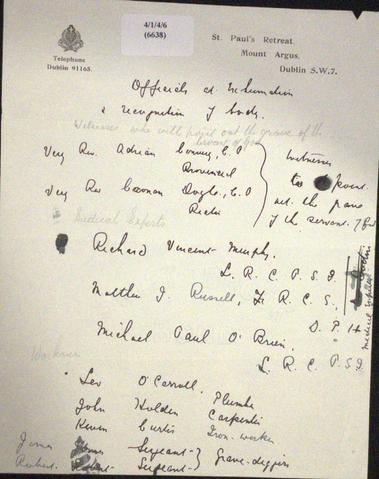 4/1/4/6
(6638)
St. Paul's Retreat,
Mount Argus,
Dublin S.W.7.
Telephone
Dublin 91165.
Officials at Exhumation
& recognition of body.
Witnesses who will point out the grave of the
Servant of God
Very Rev. Adrian C.P.
Provincial
Very Rev Doyle, C.P
Rector
Witnesses
to point
out the grave
of the servant of God
Medical Experts
Richard Vincent Murphy,
L. R. C. P. S. I.
Matthew J. Russell, F. R. C. S.,
D. P. H
Michael Paul O'Brien,
L. R. C. P. S. I
Workmen
Leo O'Carroll, Plumber
John Holden Carpenter
Kevin Curtis Iron-worker
James Sergeant
Robert Sergeant
Grave-diggers